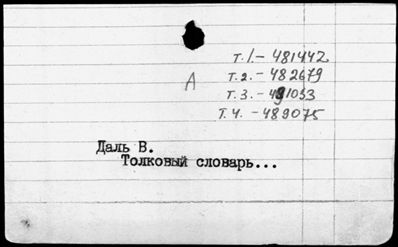 т.1.- 481442
т.2.- 482679
А
т.3.- 491053
т.4.- 489075
Даль В.
Толковый словарь...